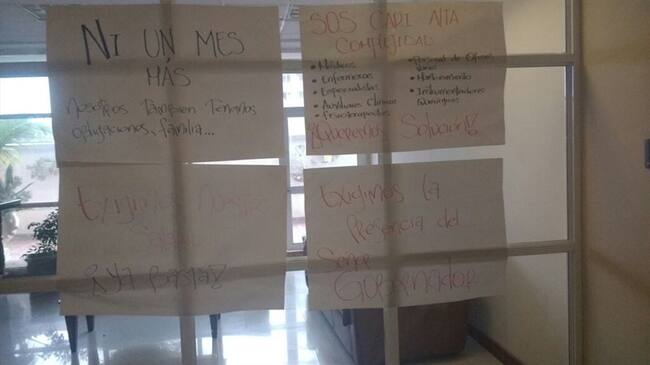 NI UN MES
MÁS
Nosotros También Tenemos
obligaciones, familia...
SOS CARI ALTA
COMPLEJIDAD
• Médicos
• Enfermeras
• Especialistas
• Auxiliares Clínicos
• Fisioterapeutas
• Personal de
• Mantenimiento
• Instrumentadores
Quirúrgicos
¡Queremos Solución!
Exigimos Nuestro
¡Ya Basta!
Exigimos La
Presencia del
Señor
Gobernador